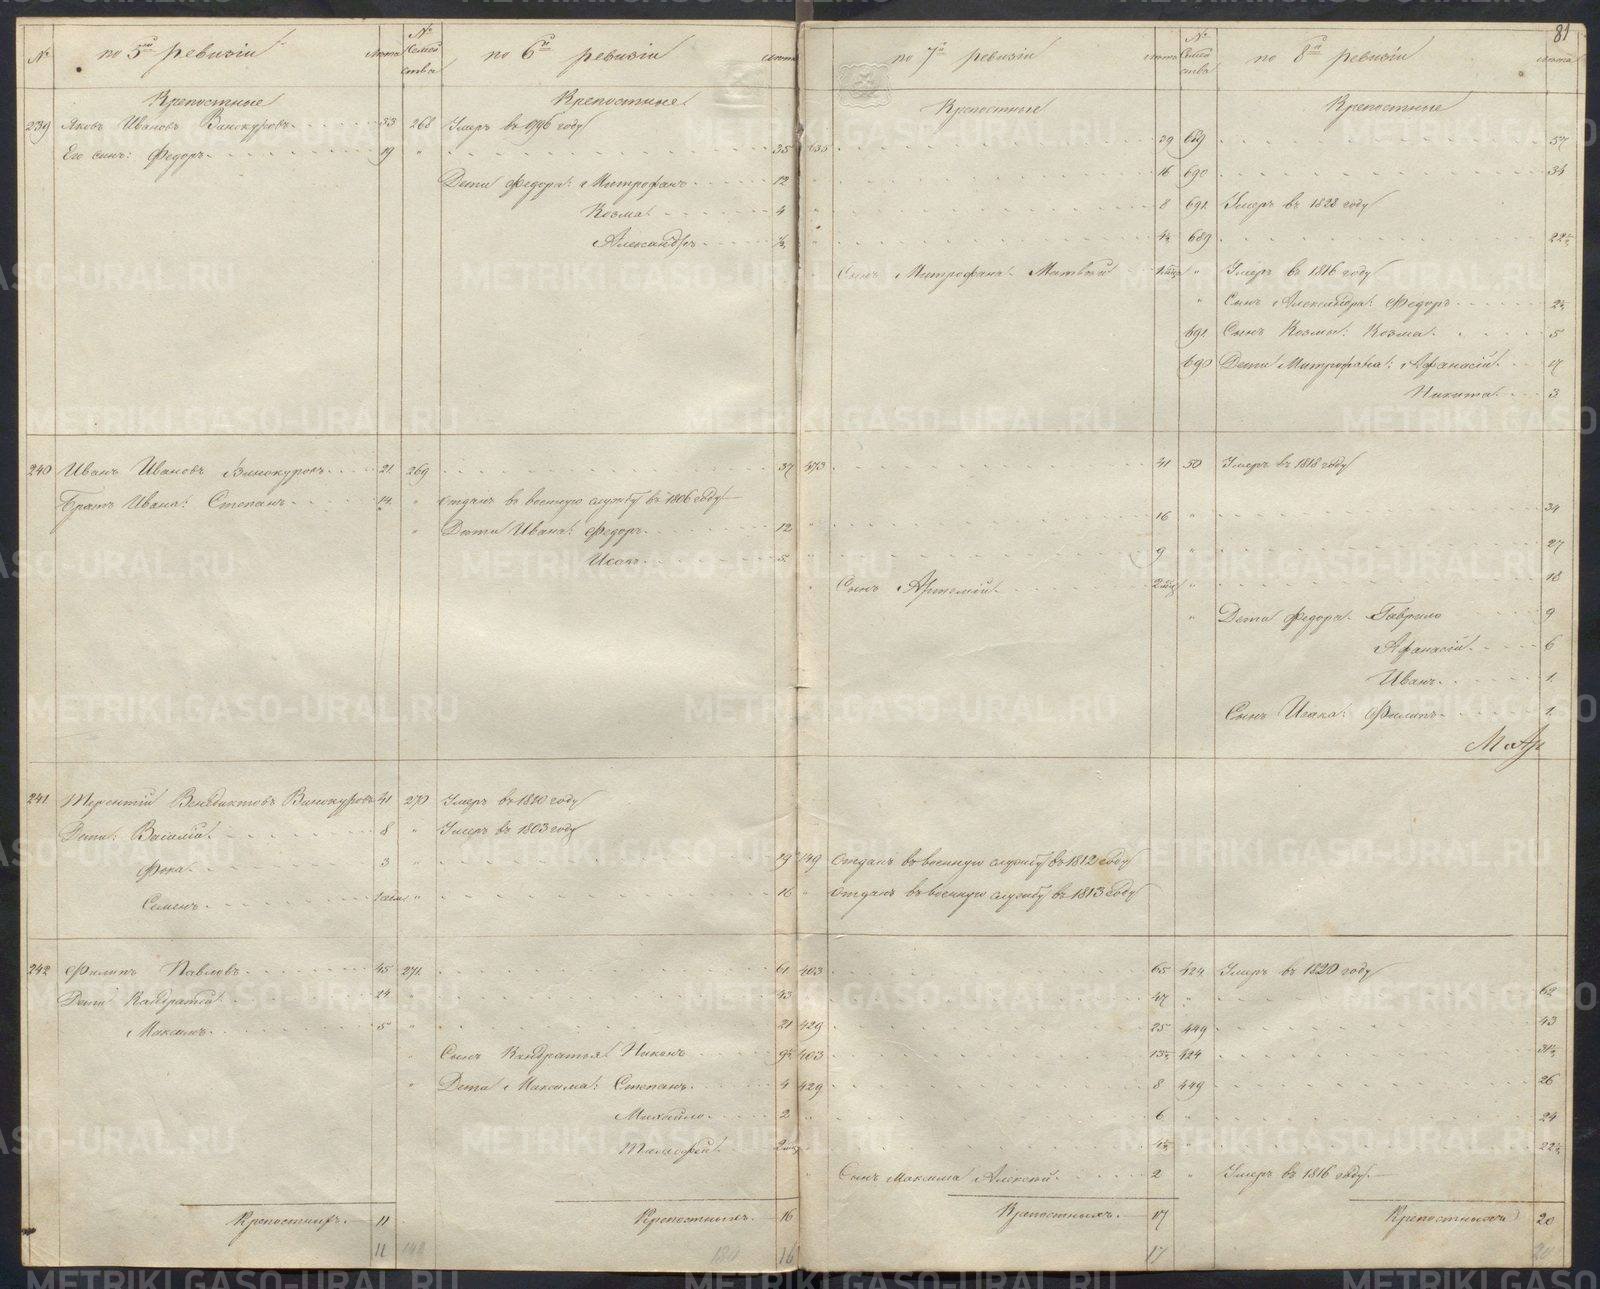 81
№ по 5й ревизіи лѣта № Семейства по 6й ревизіи лѣта
по 7й ревизіи лѣта № Семейства по 8й ревизіи лѣта
Крепостные Крепостные Крепостные Крепостные
239 Яковъ Ивановъ Винокуровъ 53 268 Умеръ въ 1796 году
Его сынъ: Федоръ 19 " 35 635 39 689 57
Дети Федора: Митрофанъ 12 16 690 34
Козма 4 " 8 691 Умеръ въ 1828 году
Александръ ½ " 4½ 689 22½
Сынъ Митрофана Матвей " Умеръ въ 1816 году
" Сынъ Александра: Федоръ 2½
691 Сынъ Козмы: Козма 5
690 Дети Митрофана: Афанасій
Никита 3
240 Иванъ Ивановъ Винокуровъ 21 269 37 473 41 50 Умеръ въ 1818 году
Братъ Ивана: Степанъ 14 " отданъ въ военную службу въ 1806 году
" Дети Ивана: Федоръ 12 " 16 " 34
Исакъ 5 " 9 " 27
Сынъ Артемій " 18
" Дети Федора Гаврило 9
Афанасій 6
Иванъ 1
Сынъ Исака: Филипъ 1
241 Терентій Венедиктовъ Винокуровъ 41 270 Умеръ въ 1810 году
Дети: Василій 8 " Умеръ въ 1803 году
Фока 3 " 19 149 Отданъ въ военную службу въ 1812 году
Семенъ " 16 " Отданъ въ военную службу въ 1813 году
242 Филипъ Павловъ 45 271 61 403 65 424 Умеръ въ 1820 году
Дети Кандратій 24 " 43 47 " 62
Максимъ 5 " 21 429 25 449 43
" Сынъ Кандратья Никонъ 9½ 403 13½ 424 31½
" Дети Максима: Степанъ 4 429 8 449 26
Михайло 2 " 6 " 24
Тимофей " 4½ " 22½
Сынъ Максима Алексей 2 " Умеръ въ 1816 году
Крепостныхъ 11 Крепостныхъ 16 Крепостныхъ 17 Крепостныхъ 20
11 16 17 20
METRIKI.GASO-URAL.RU